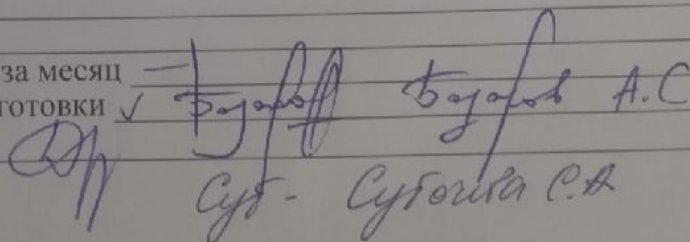 за месяц —
готовки ✓ Базаров А.С
Суб - Суботина С.А